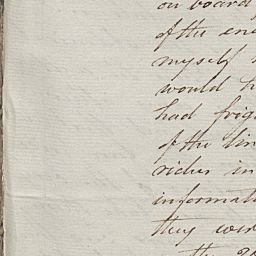 on board
of the en
myself
would h
had frig
of the lin
richer in
informat
they wer
the